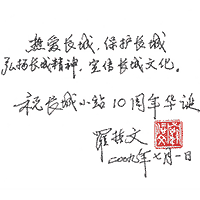 热爱长城,保护长城
弘扬长城精神,宣传长城文化。
祝长城小站10周年华诞
罗哲文
二〇〇九年七月一日